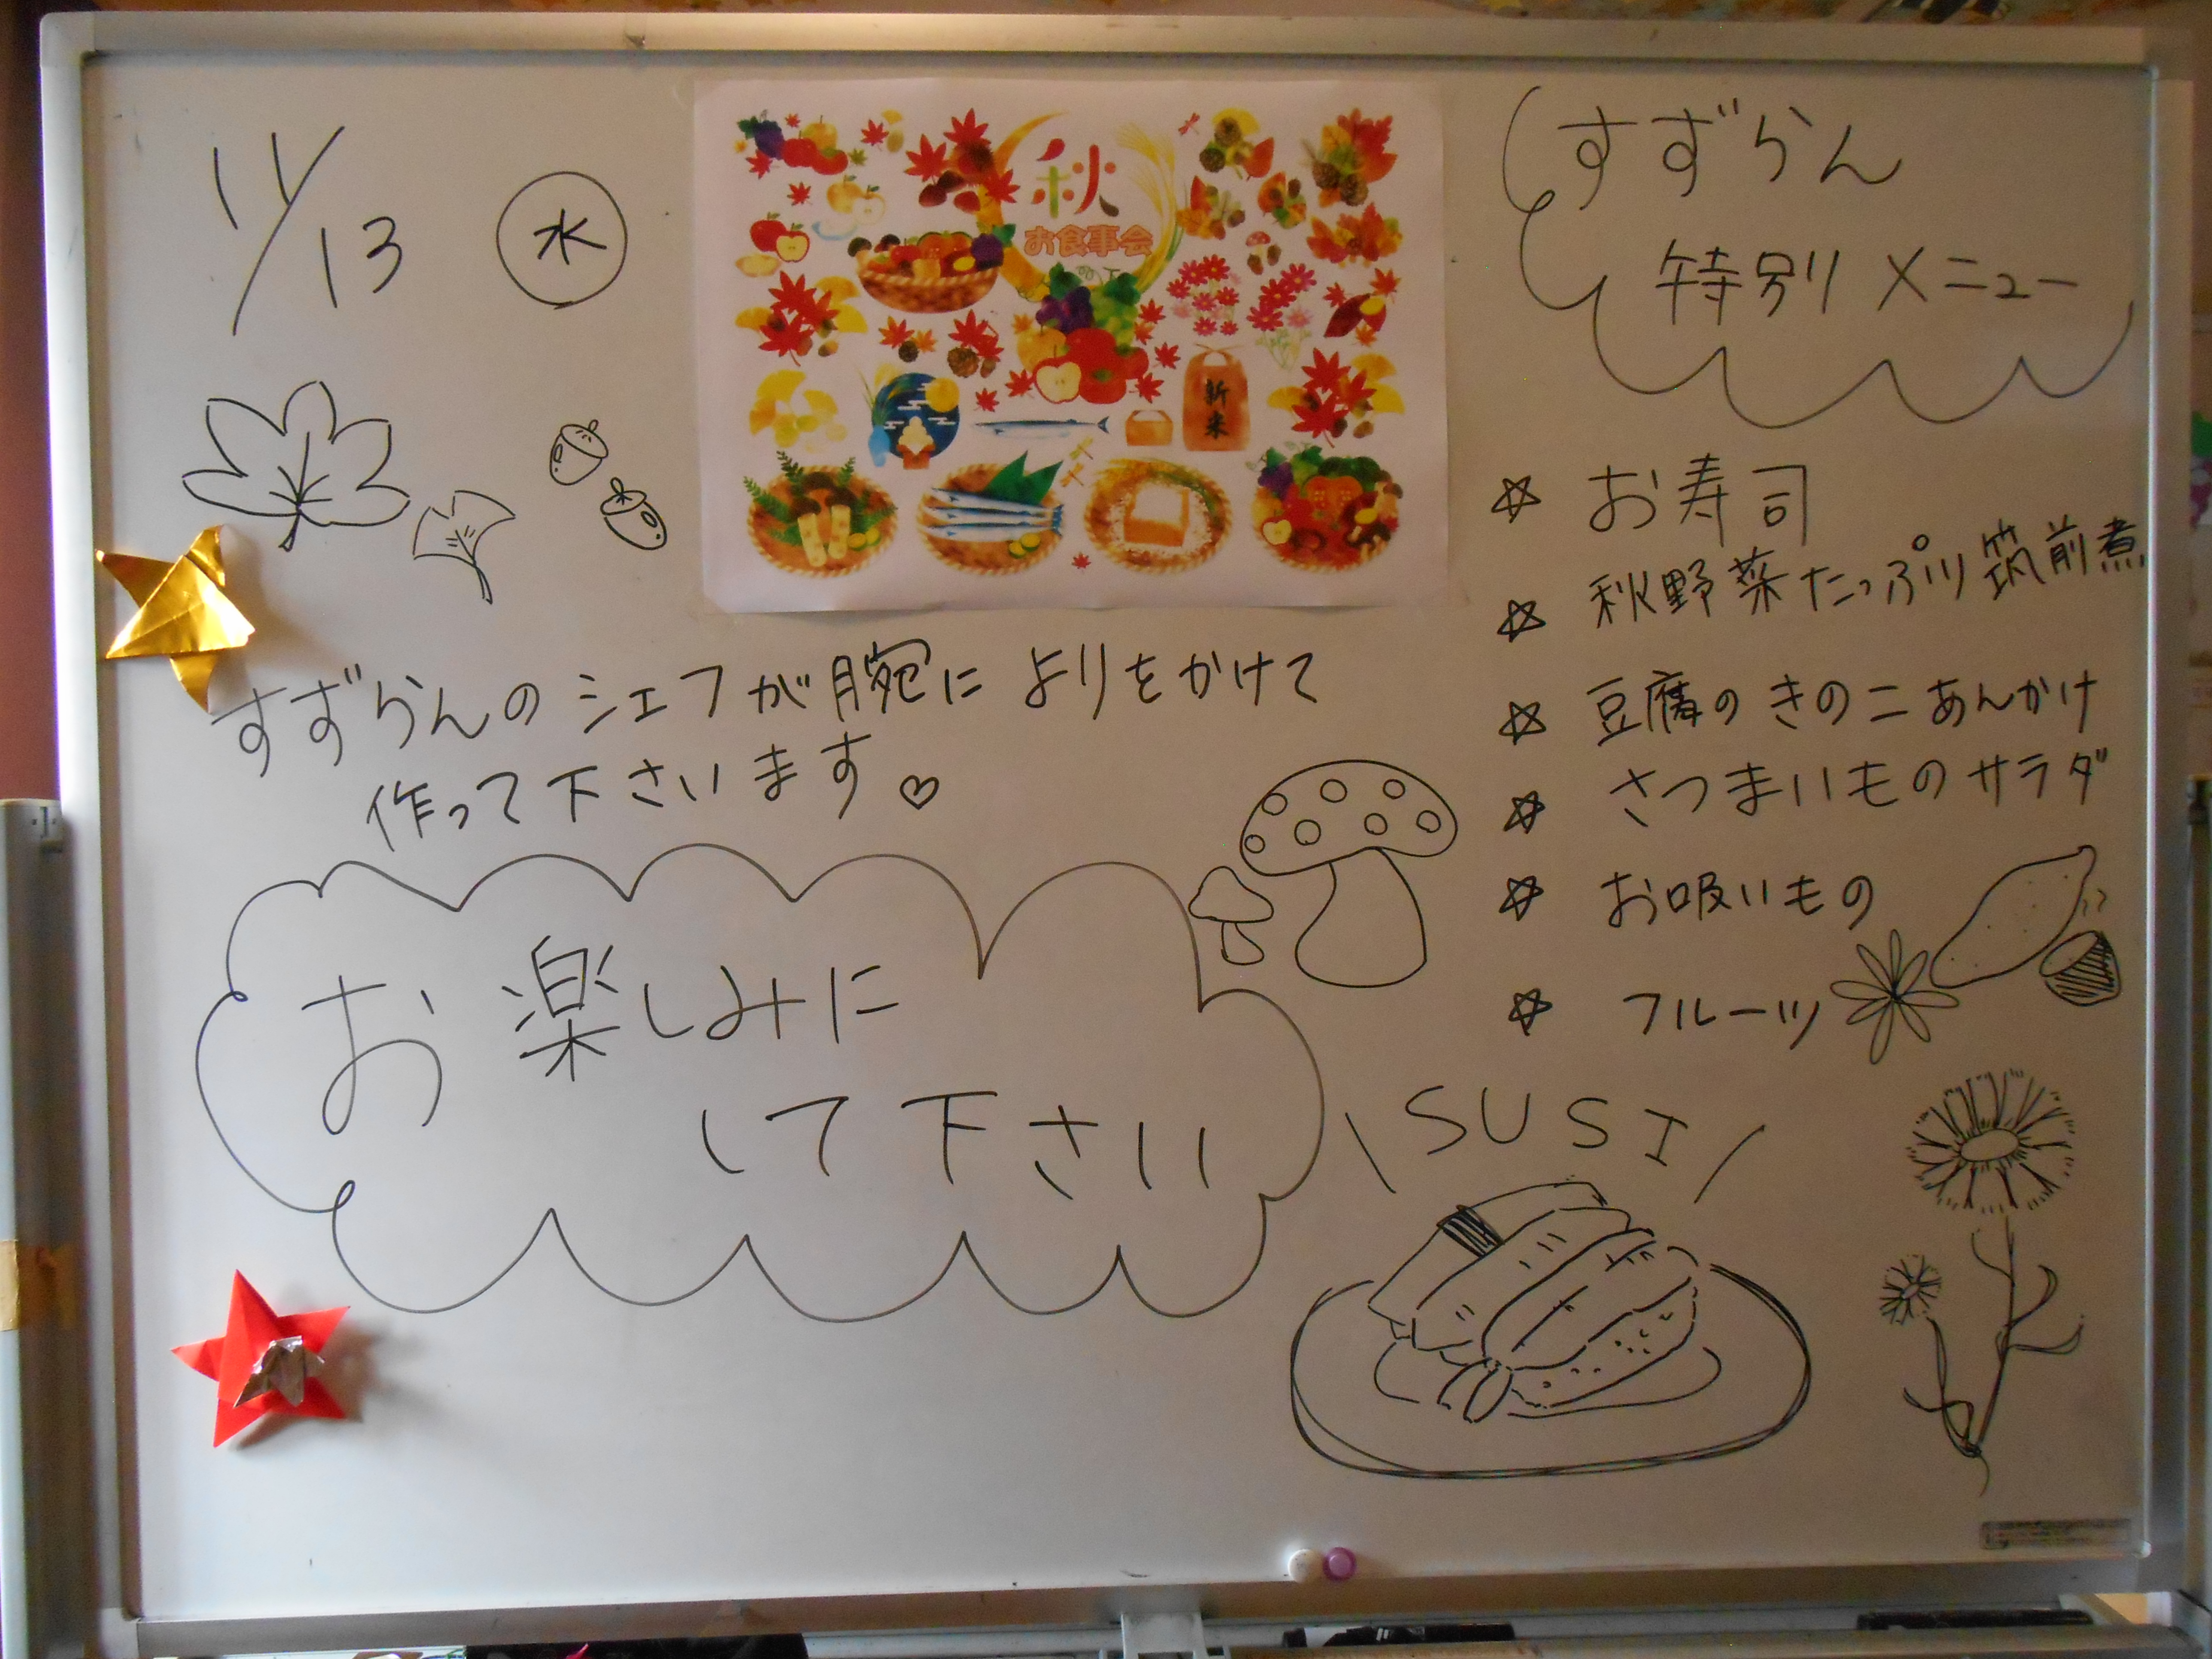 11/13 水
秋
お食事会
新米
すずらん
特別メニュー
☆ お寿司
☆ 秋野菜たっぷり筑前煮
☆ 豆腐のきのこあんかけ
☆ さつまいものサラダ
☆ お吸いもの
☆ フルーツ
すずらんのシェフが腕によりをかけて
作って下さいます♡
お楽しみに
して下さい
\SUSI/